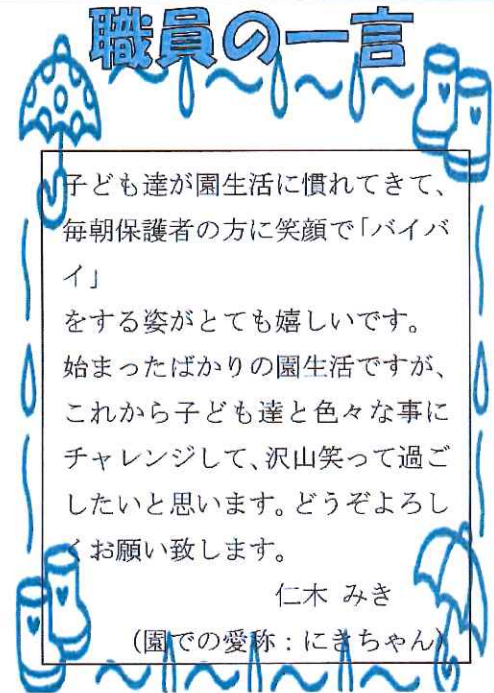 職員の一言
子ども達が園生活に慣れてきて、
毎朝保護者の方に笑顔で「バイバ
イ」
をする姿がとても嬉しいです。
始まったばかりの園生活ですが、
これから子ども達と色々な事に
チャレンジして、沢山笑って過ご
したいと思います。どうぞよろし
くお願い致します。
仁木 みき
(園での愛称：にきちゃん)